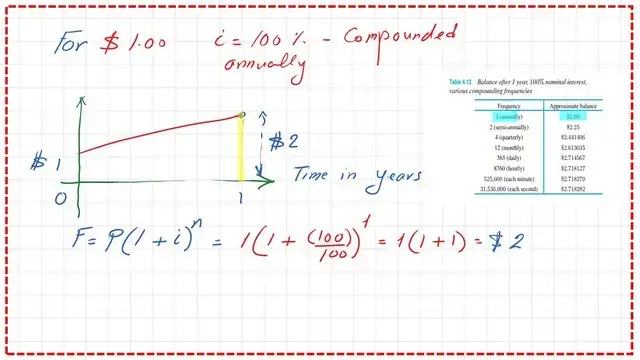 For $ 1.00 i = 100 % - Compounded
annually
Table 4.12 Balance after 1 year, 100% nominal interest,
various compounding frequencies
Frequency Approximate balance
1 (annually) $2.00
2 (semi-annually) $2.25
4 (quarterly) $2.441406
12 (monthly) $2.613035
365 (daily) $2.714567
8760 (hourly) $2.718127
525,600 (each minute) $2.718279
31,536,000 (each second) $2.718282
$ 1
$ 2
0
1
Time in years
F = P(1 + i)^n = 1(1 + (100)/100)^1 = 1(1 + 1) = $ 2